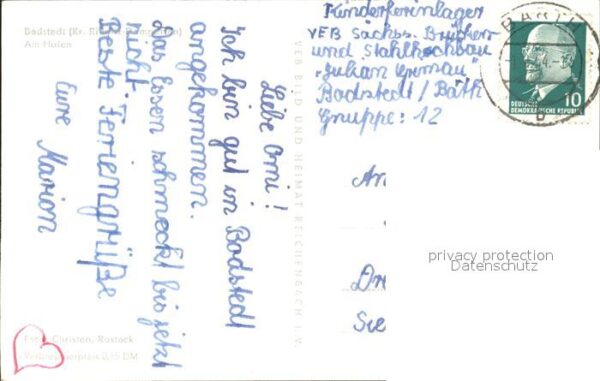 Bodstedt (Kr. Ri
Am Hafen
Liebe Omi!
Ich bin gut in Bodstedt
angekommen.
Das Essen schmeckt bis jetzt
nicht.
Beste Feriengrüße
Eure Marion
Foto: Christen, Rostock
Verbraucherpreis 0,15 DM
VEB BILD UND HEIMAT REICHENBACH I. V.
Kinderferienlager
VEB Sächs. Brücken
und Stahlhochbau
"Julian
Bodstedt / Barth
Gruppe: 12
BARTH
b
10
DEUTSCHE
DEMOKRATISCHE REPUBLIK
An
Dre
Sie
privacy protection
Datenschutz